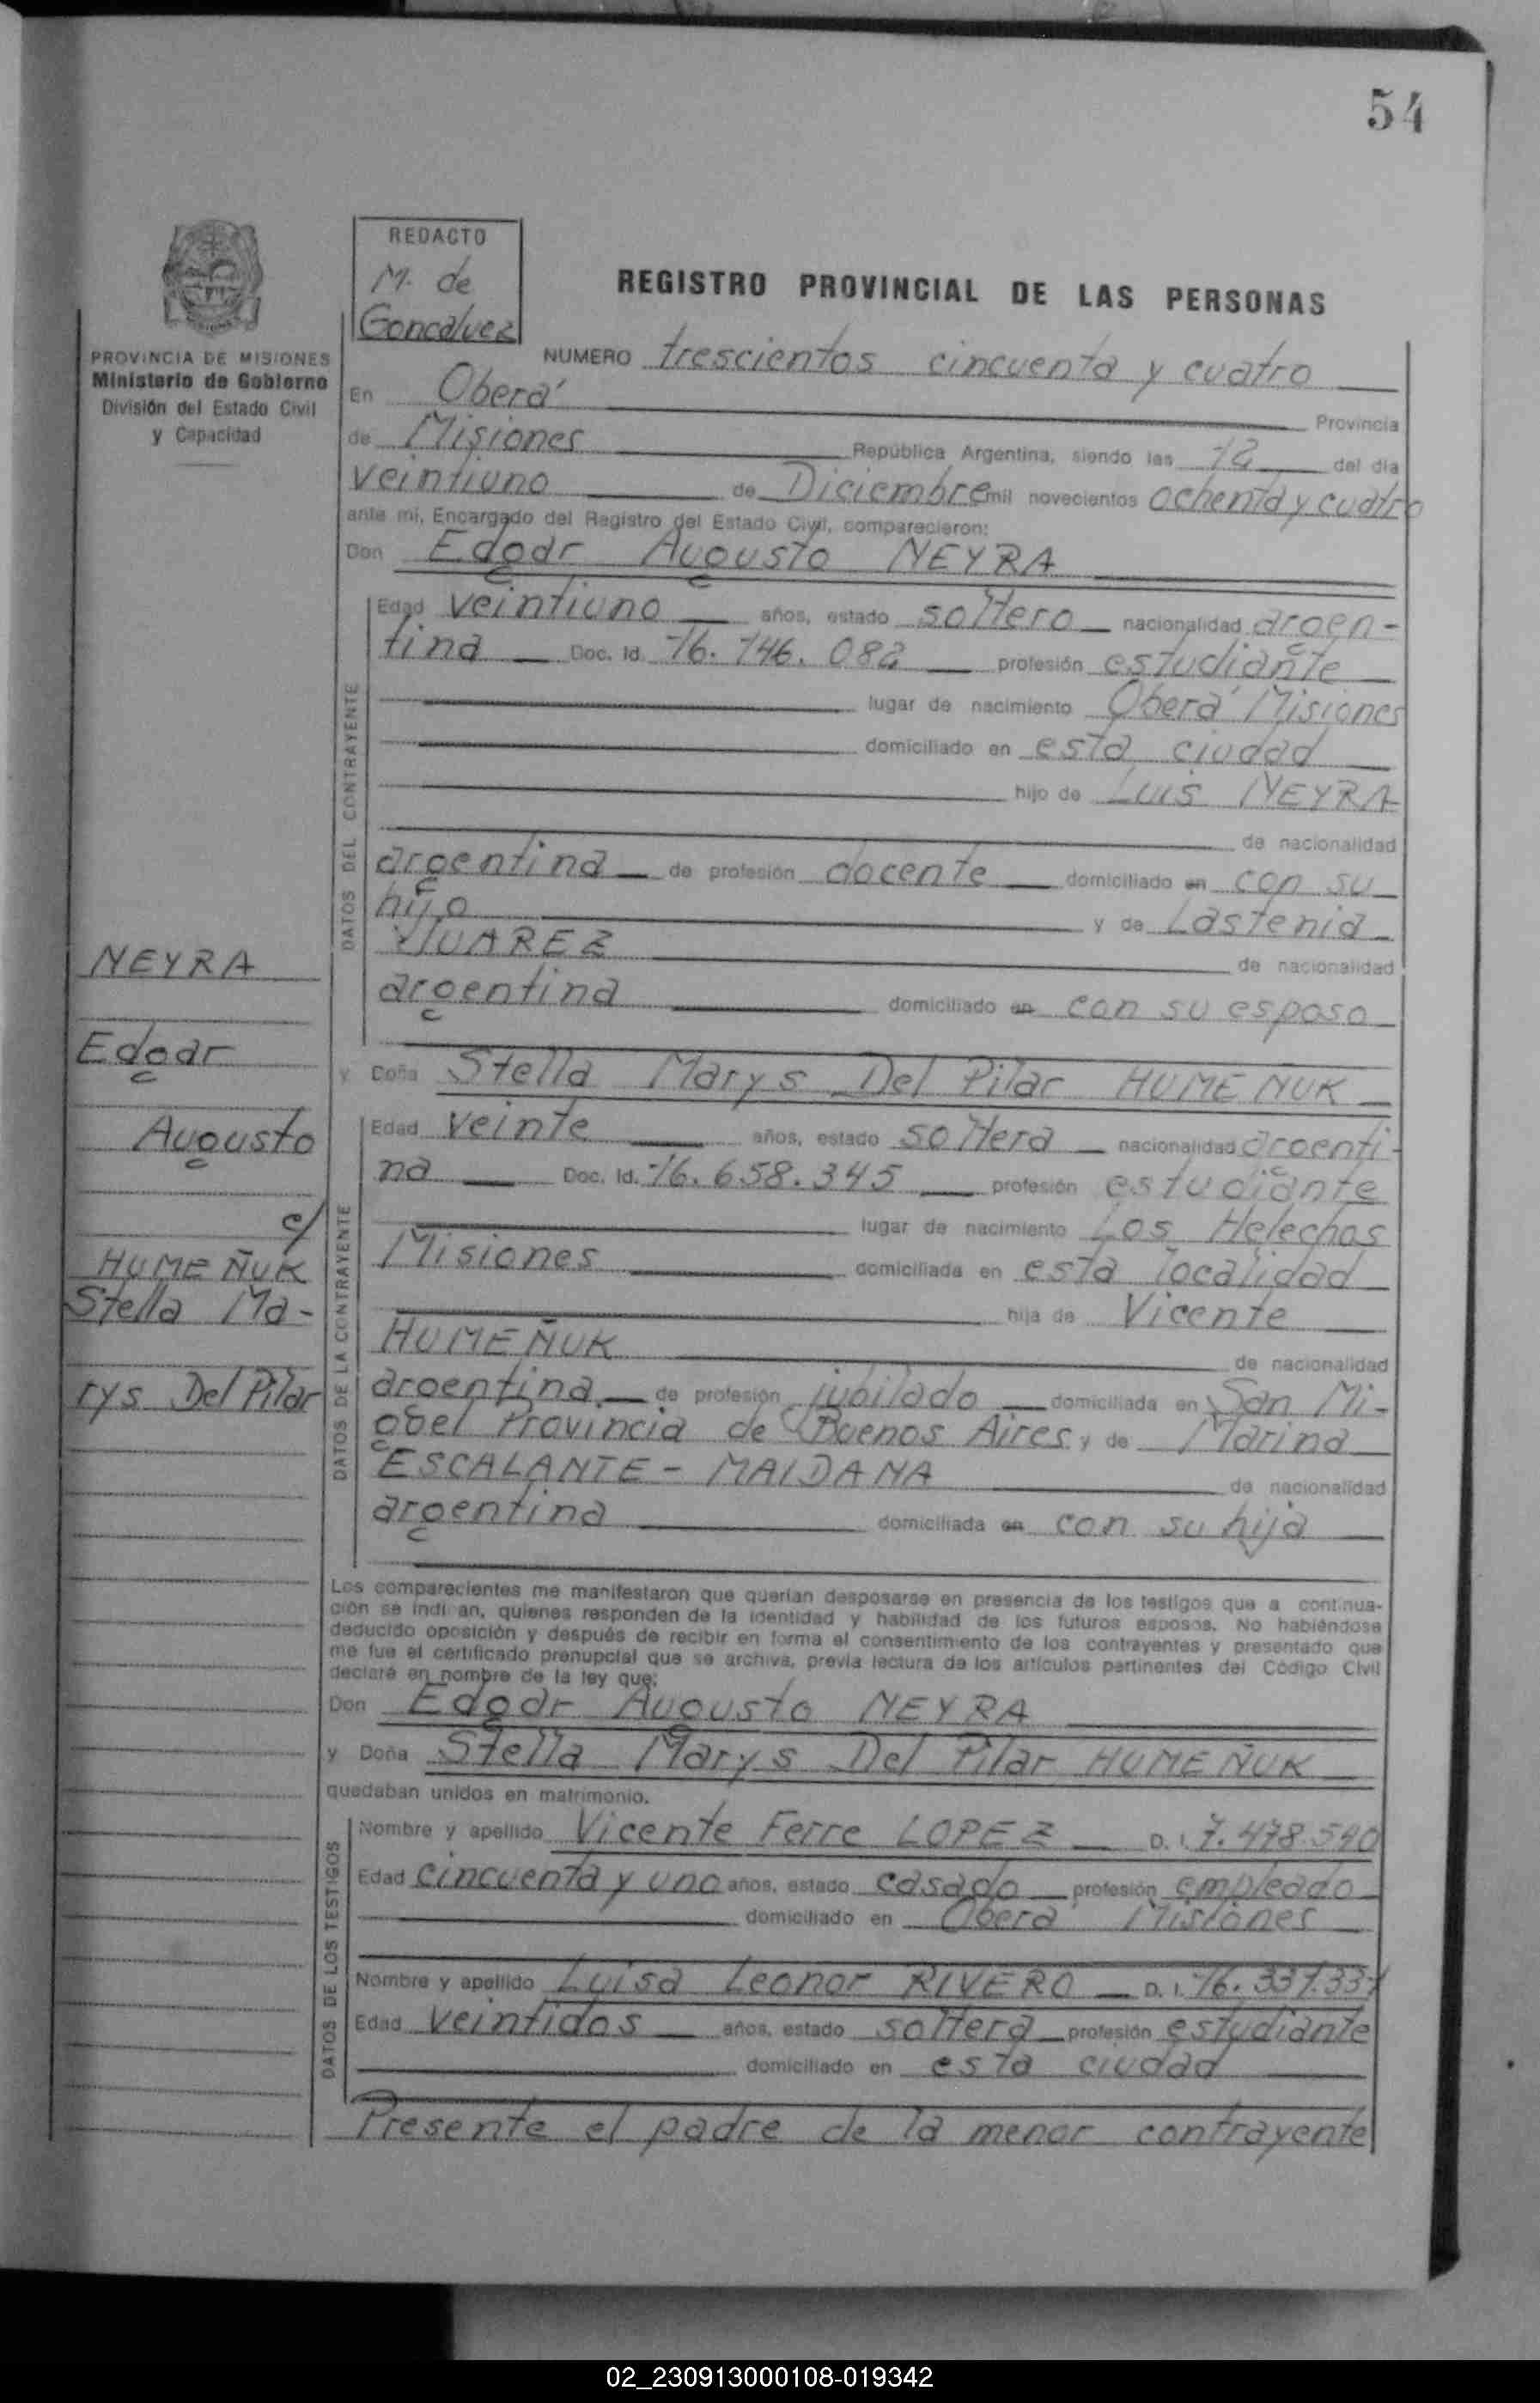 54
REDACTO
M. de
Goncalvez
REGISTRO PROVINCIAL DE LAS PERSONAS
PROVINCIA DE MISIONES
Ministerio de Gobierno
División del Estado Civil
y Capacidad
NUMERO trescientos cincuenta y cuatro
En Oberá Provincia
de Misiones República Argentina, siendo las 12 del día
veintiuno de Diciembre mil novecientos ochenta y cuatro
ante mi, Encargado del Registro del Estado Civil, comparecieron:
Don Edgar Augusto NEYRA
DATOS DEL CONTRAYENTE
Edad veintiuno años, estado soltero nacionalidad argen-
tina Doc. Id. 16.146.082 profesión estudiante
lugar de nacimiento Oberá Misiones
domiciliado en esta ciudad
hijo de Luis NEYRA
de nacionalidad
argentina de profesión docente domiciliado en con su
hijo y de Lastenia
JUAREZ de nacionalidad
argentina domiciliado en con su esposo
y Doña Stella Marys Del Pilar HUMEÑUK
DATOS DE LA CONTRAYENTE
Edad veinte años, estado soltera nacionalidad argenti-
na Doc. Id. 16.658.345 profesión estudiante
lugar de nacimiento Los Helechos
Misiones domiciliada en esta localidad
hija de Vicente
HUMEÑUK de nacionalidad
argentina de profesión jubilado domiciliada en San Mi-
guel Provincia de Buenos Aires y de Marina
ESCALANTE - MAIDANA de nacionalidad
argentina domiciliada en con su hija
NEYRA
Edgar
Augusto
c/
HUMEÑUK
Stella Ma-
rys Del Pilar
Los comparecientes me manifestaron que querían desposarse en presencia de los testigos que a continua-
ción se indi an, quienes responden de la identidad y habilidad de los futuros esposos. No habiéndose
deducido oposición y después de recibir en forma el consentimiento de los contrayentes y presentado que
me fue el certificado prenupcial que se archiva, previa lectura de los artículos pertinentes del Código Civil
declaré en nombre de la ley que:
Don Edgar Augusto NEYRA
y Doña Stella Marys Del Pilar HUMEÑUK
quedaban unidos en matrimonio.
DATOS DE LOS TESTIGOS
Nombre y apellido Vicente Ferre LOPEZ D. I. 7.478.540
Edad cincuenta y uno años, estado casado profesión empleado
domiciliado en Oberá Misiones
Nombre y apellido Luisa Leonor RIVERO D. I. 16.337.337
Edad veintidos años, estado soltera profesión estudiante
domiciliado en esta ciudad
Presente el padre de la menor contrayente
02_230913000108-019342